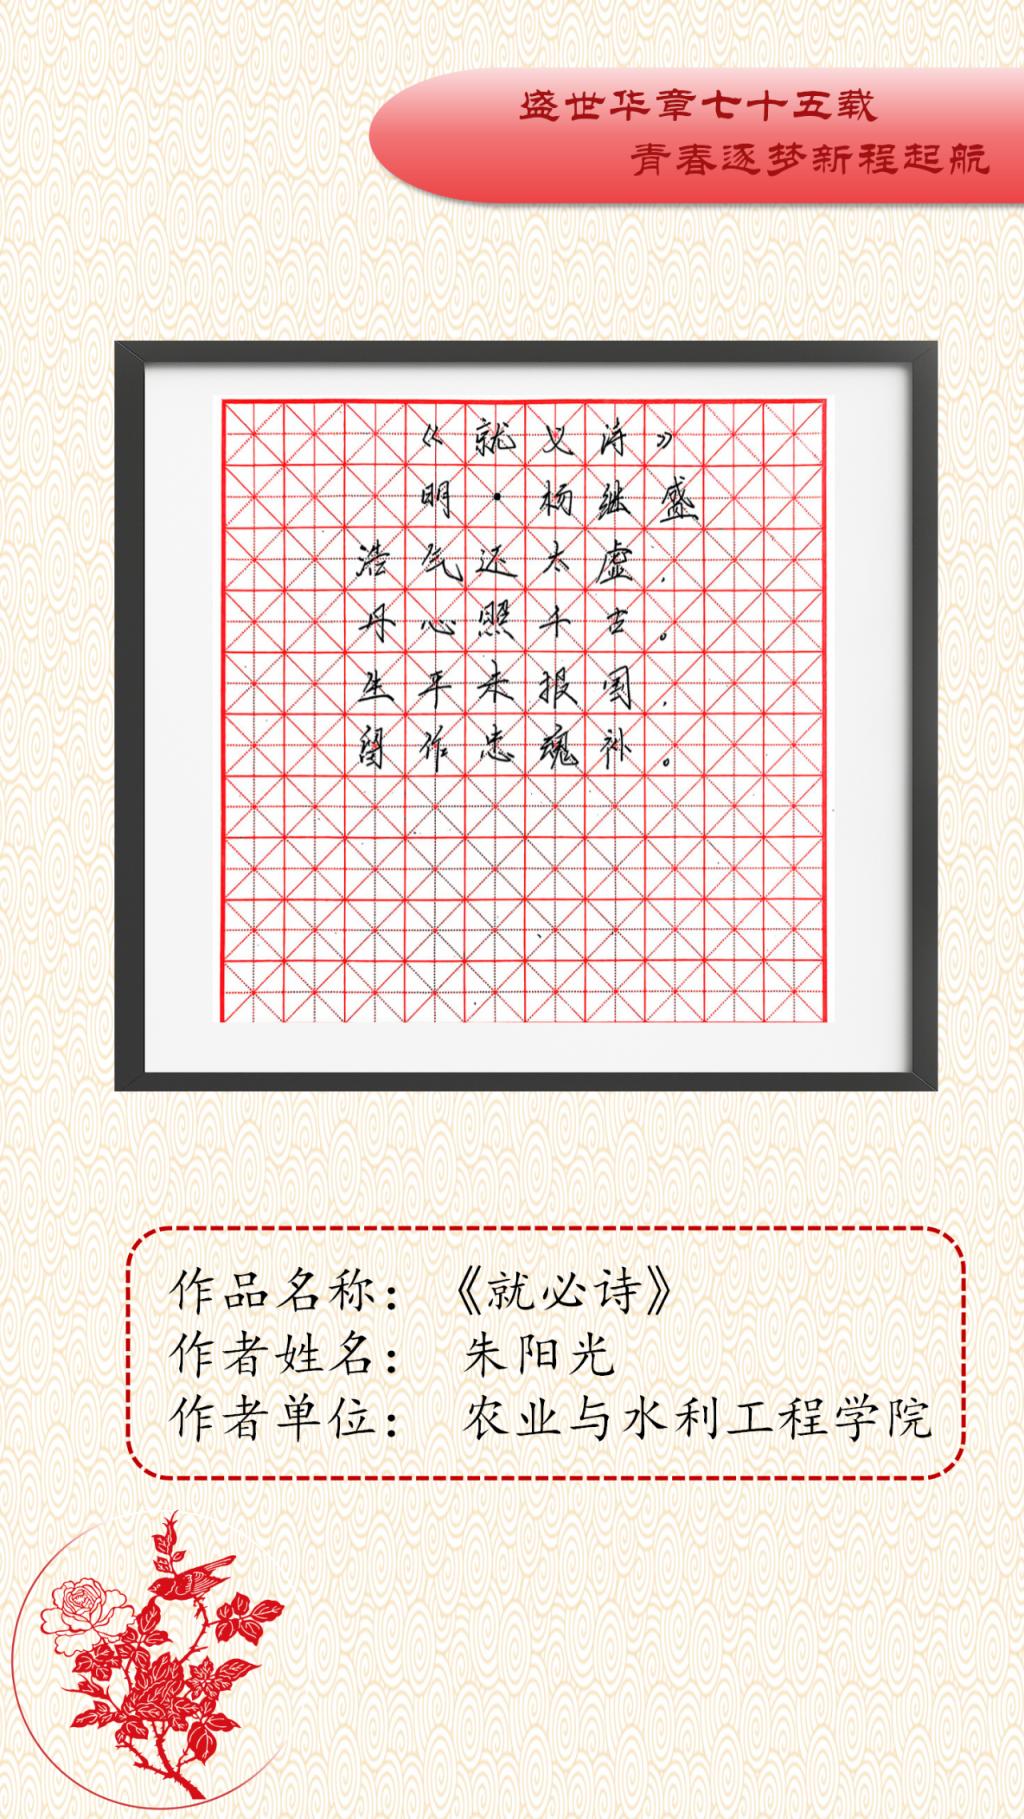 盛世华章七十五载
青春逐梦新程起航
《就义诗》
明·杨继盛
浩气还太虚，
丹心照千古。
生平未报国，
留作忠魂补。
作品名称：《就必诗》
作者姓名： 朱阳光
作者单位： 农业与水利工程学院